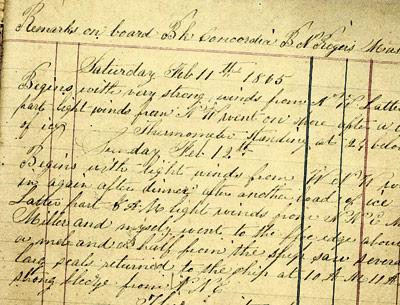 Remarks on board Bk Concordia B N Rogers Mas
Saturday Feb 11th 1865
Begins with very strong winds from N W Latter
part light winds from N W went on shore after a
of ice Thermometer Standing at 24 below
Sunday Feb 12th
Begins with light winds from W N W
ing again after dinner after another load of ice
Latter part A M light winds from N N E M
Miller and myself went to the floe edge about
a mile and a half from the ship saw several
larg seals returned to the ship at 10 A M 11 A
strong breeze from N N E